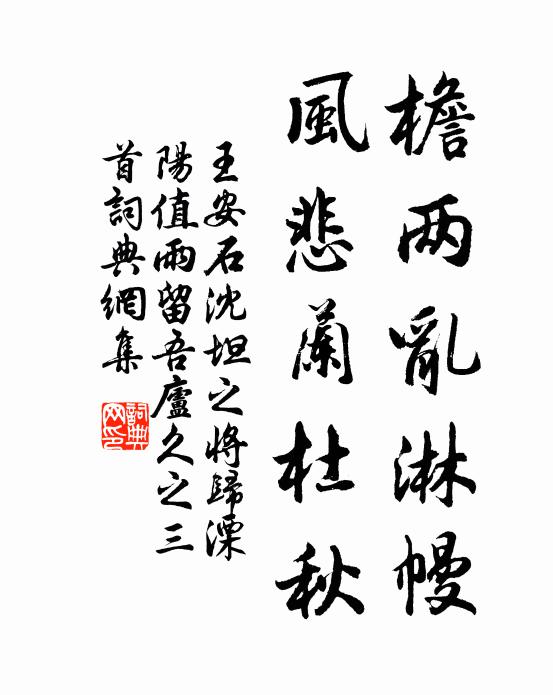 檐两亂淋幔
風悲蘭杜秋
王安石沈坦之將歸溧
陽值雨留吾廬久之三
首詞典網集
詞典
网印